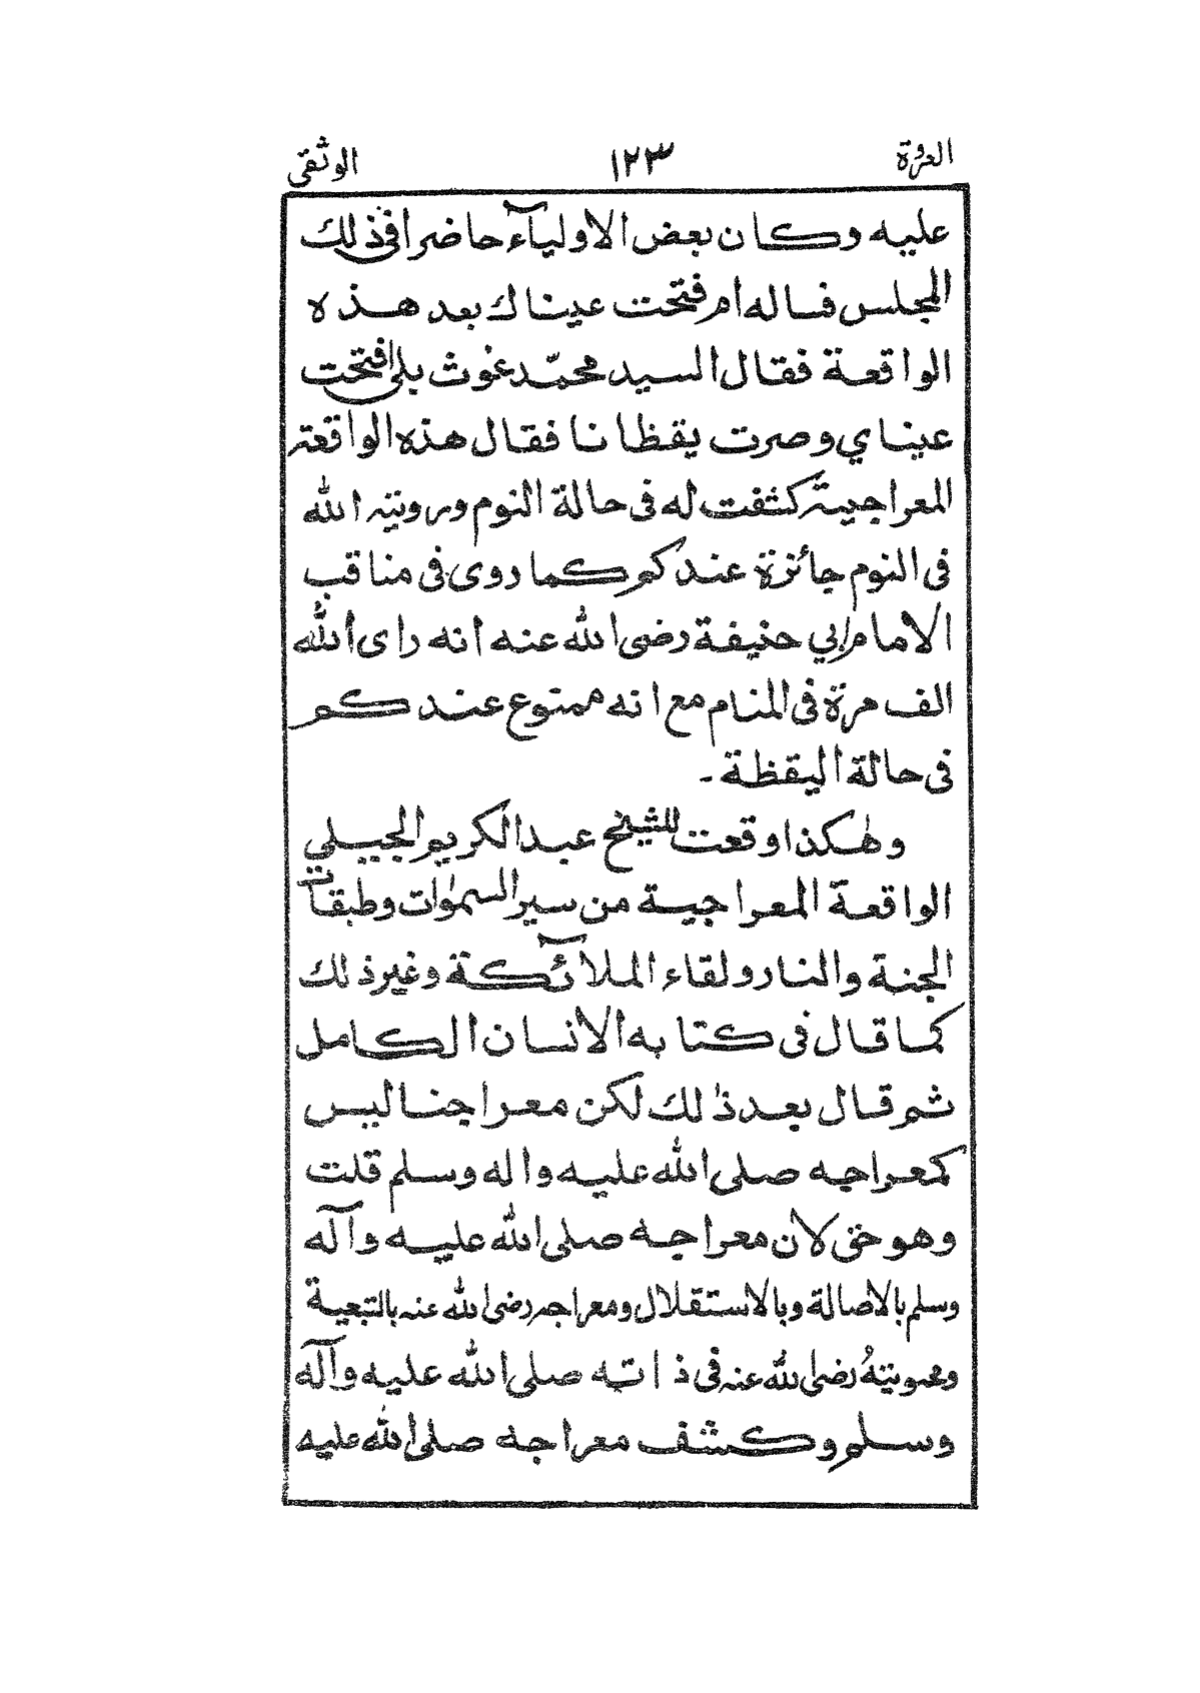 العروة ١٢٣ الوثقى
عليه وكان بعض الاولياۤء حاضرا فى ذلك
المجلس فساله ام فتحت عيناك بعد هذه
الواقعة فقال السيد محمّد غوث بلى افتحت
عيناي وصرت يقظانا فقال هذه الواقعة
المعراجية كشفت له فى حالة النوم ورويته الله
فى النوم جائزة عندكم كما روى فى مناقب
الامام ابي حنيفة رضى الله عنه انه راى الله
الف مرة فى المنام مع انه ممتوع عندكم
فى حالة اليقظة ـ
وهٰكذا وقعت للشيخ عبد الكريم الجيلي
الواقعة المعراجية من سير السمٰوات وطبقات
الجنة والنار ولقاء الملاۤئكة وغير ذلك
كما قال فى كتابه الانسان الكامل
ثم قال بعد ذٰلك لكن معراجنا ليس
كمعراجه صلى الله عليه واله وسلم قلت
وهو حق لان معراجه صلى الله عليه وآله
وسلم بالاصالة وبالاستقلال ومعراجه رضى الله عنه بالتبعية
ومحويتهُ رضى الله عنه فى ذاته صلى الله عليه وآله
وسلم وكشف معراجه صلى الله عليه